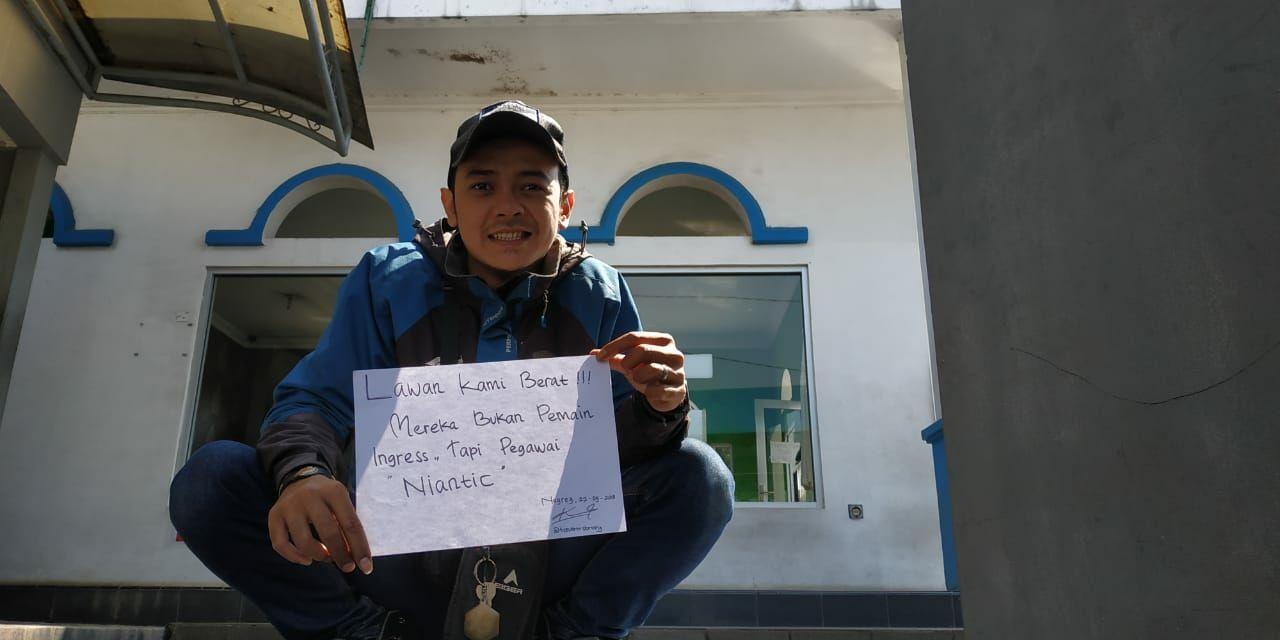 Lawan Kami Berat !!!
Mereka Bukan Pemain
Ingress,, Tapi Pegawai
"Niantic"
EIGER